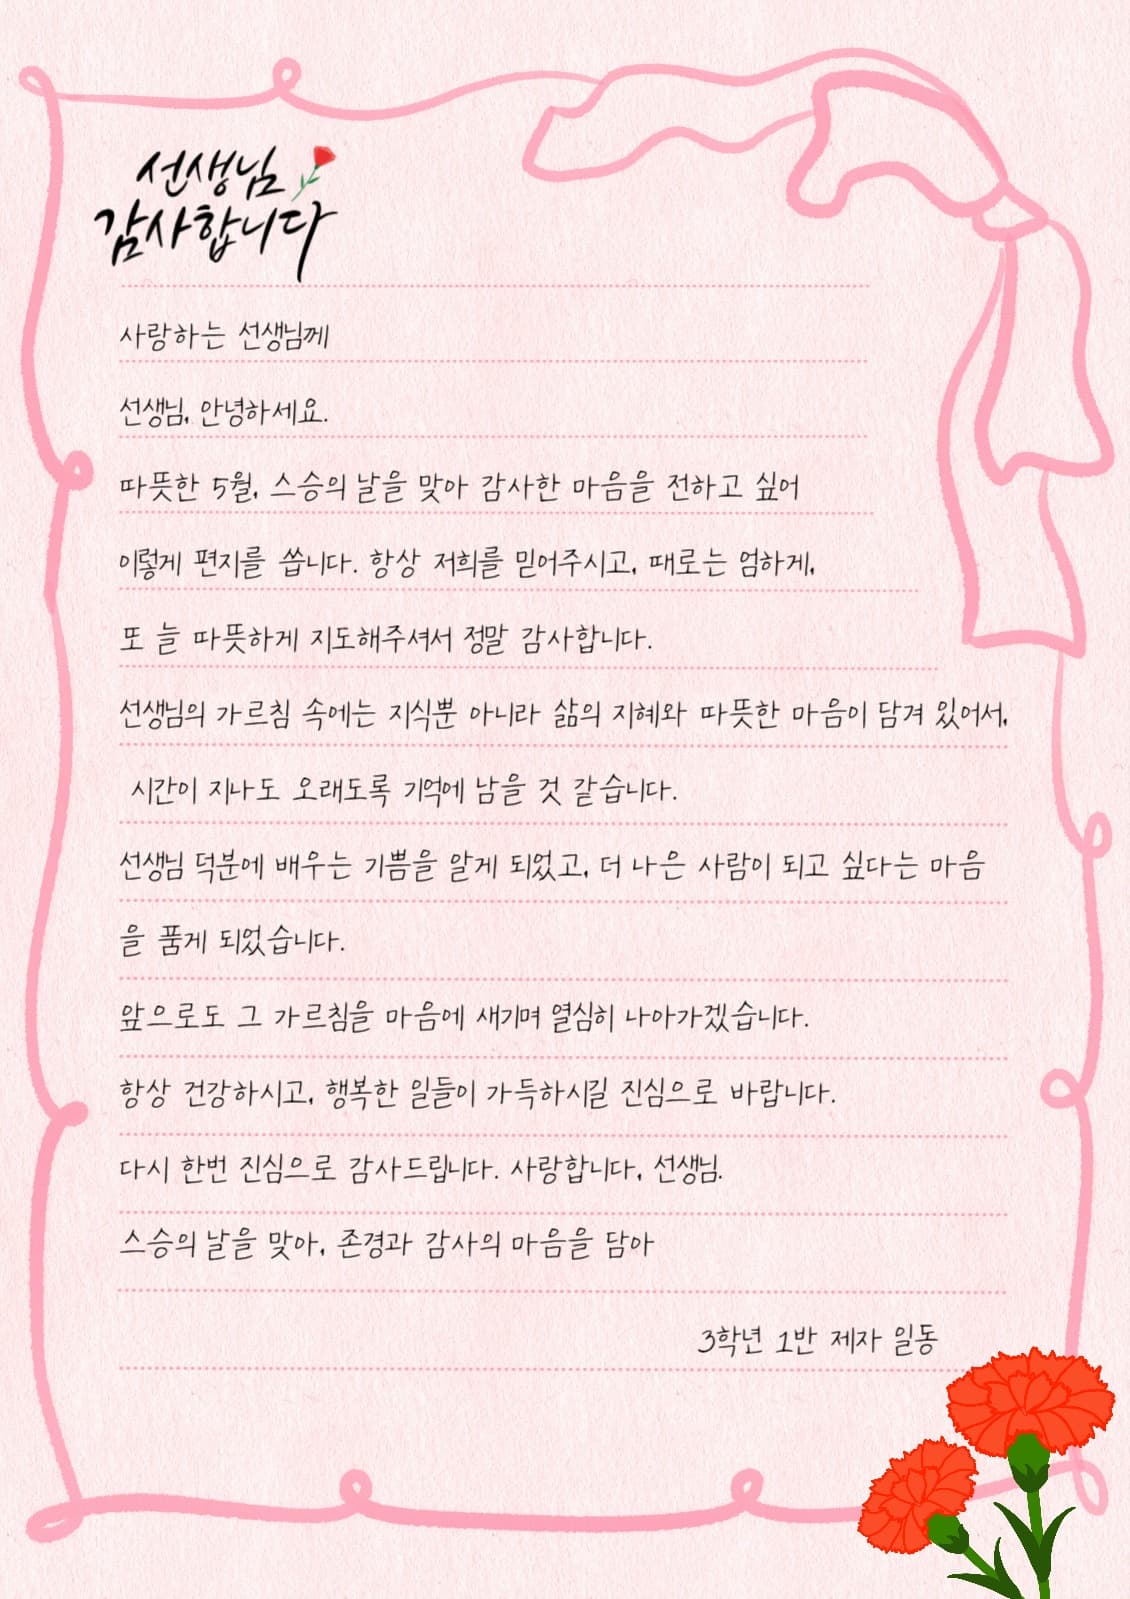 선생님
감사합니다
사랑하는 선생님께
선생님, 안녕하세요.
따뜻한 5월, 스승의 날을 맞아 감사한 마음을 전하고 싶어
이렇게 편지를 씁니다. 항상 저희를 믿어주시고, 때로는 엄하게,
또 늘 따뜻하게 지도해주셔서 정말 감사합니다.
선생님의 가르침 속에는 지식뿐 아니라 삶의 지혜와 따뜻한 마음이 담겨 있어서,
시간이 지나도 오래도록 기억에 남을 것 같습니다.
선생님 덕분에 배우는 기쁨을 알게 되었고, 더 나은 사람이 되고 싶다는 마음
을 품게 되었습니다.
앞으로도 그 가르침을 마음에 새기며 열심히 나아가겠습니다.
항상 건강하시고, 행복한 일들이 가득하시길 진심으로 바랍니다.
다시 한번 진심으로 감사드립니다. 사랑합니다, 선생님.
스승의 날을 맞아, 존경과 감사의 마음을 담아
3학년 1반 제자 일동